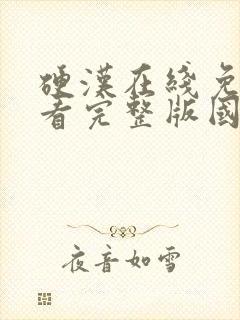 硬漢在綫免
看完整版國
夜音如雪